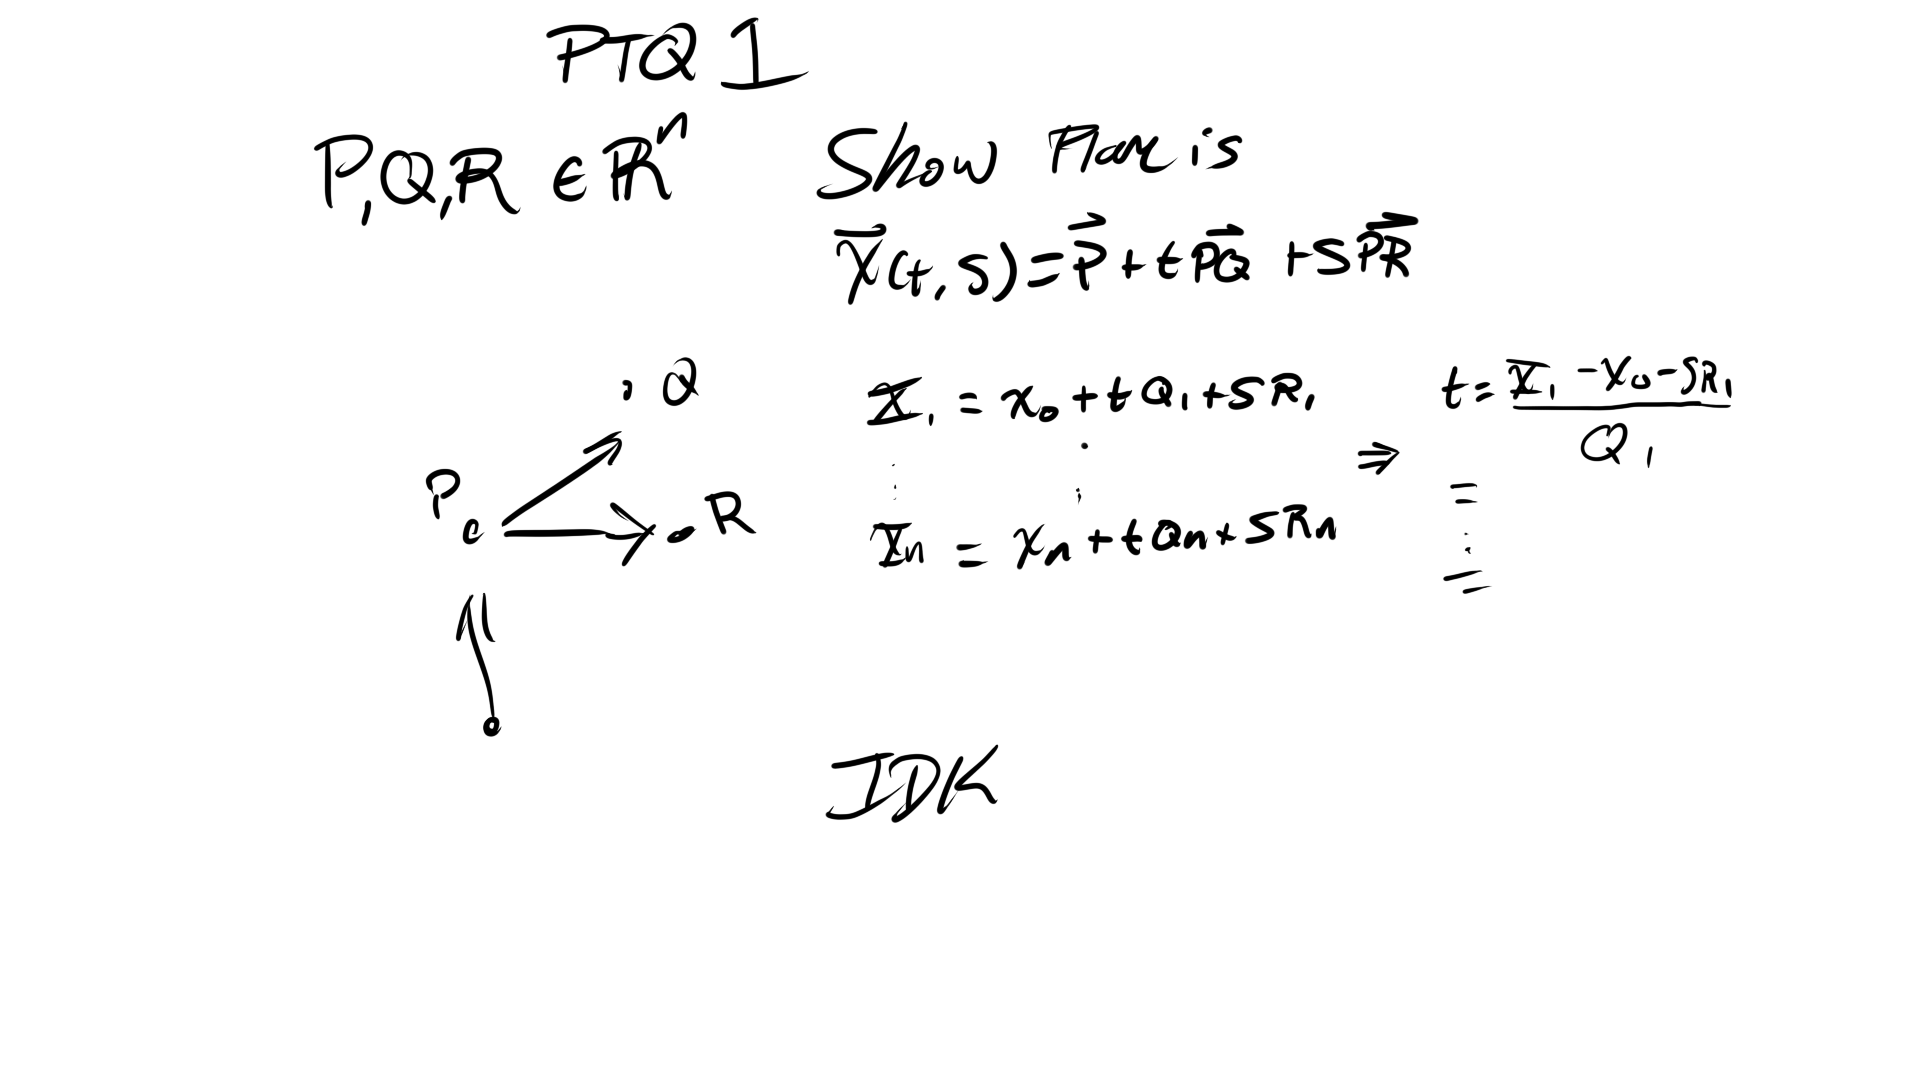 PTQ 1
P,Q,R ∈ ℝⁿ Show Plane is
X̄(t,s) = P⃗ + tPQ⃗ + sPR⃗
Q
P
R
X₁ = x₀ + tQ₁ + sR₁
⋮ ⋮
Xₙ = xₙ + tQₙ + sRₙ
⇒ t = (X₁ - x₀ - sR₁) / Q₁
=
⋮
=
IDK